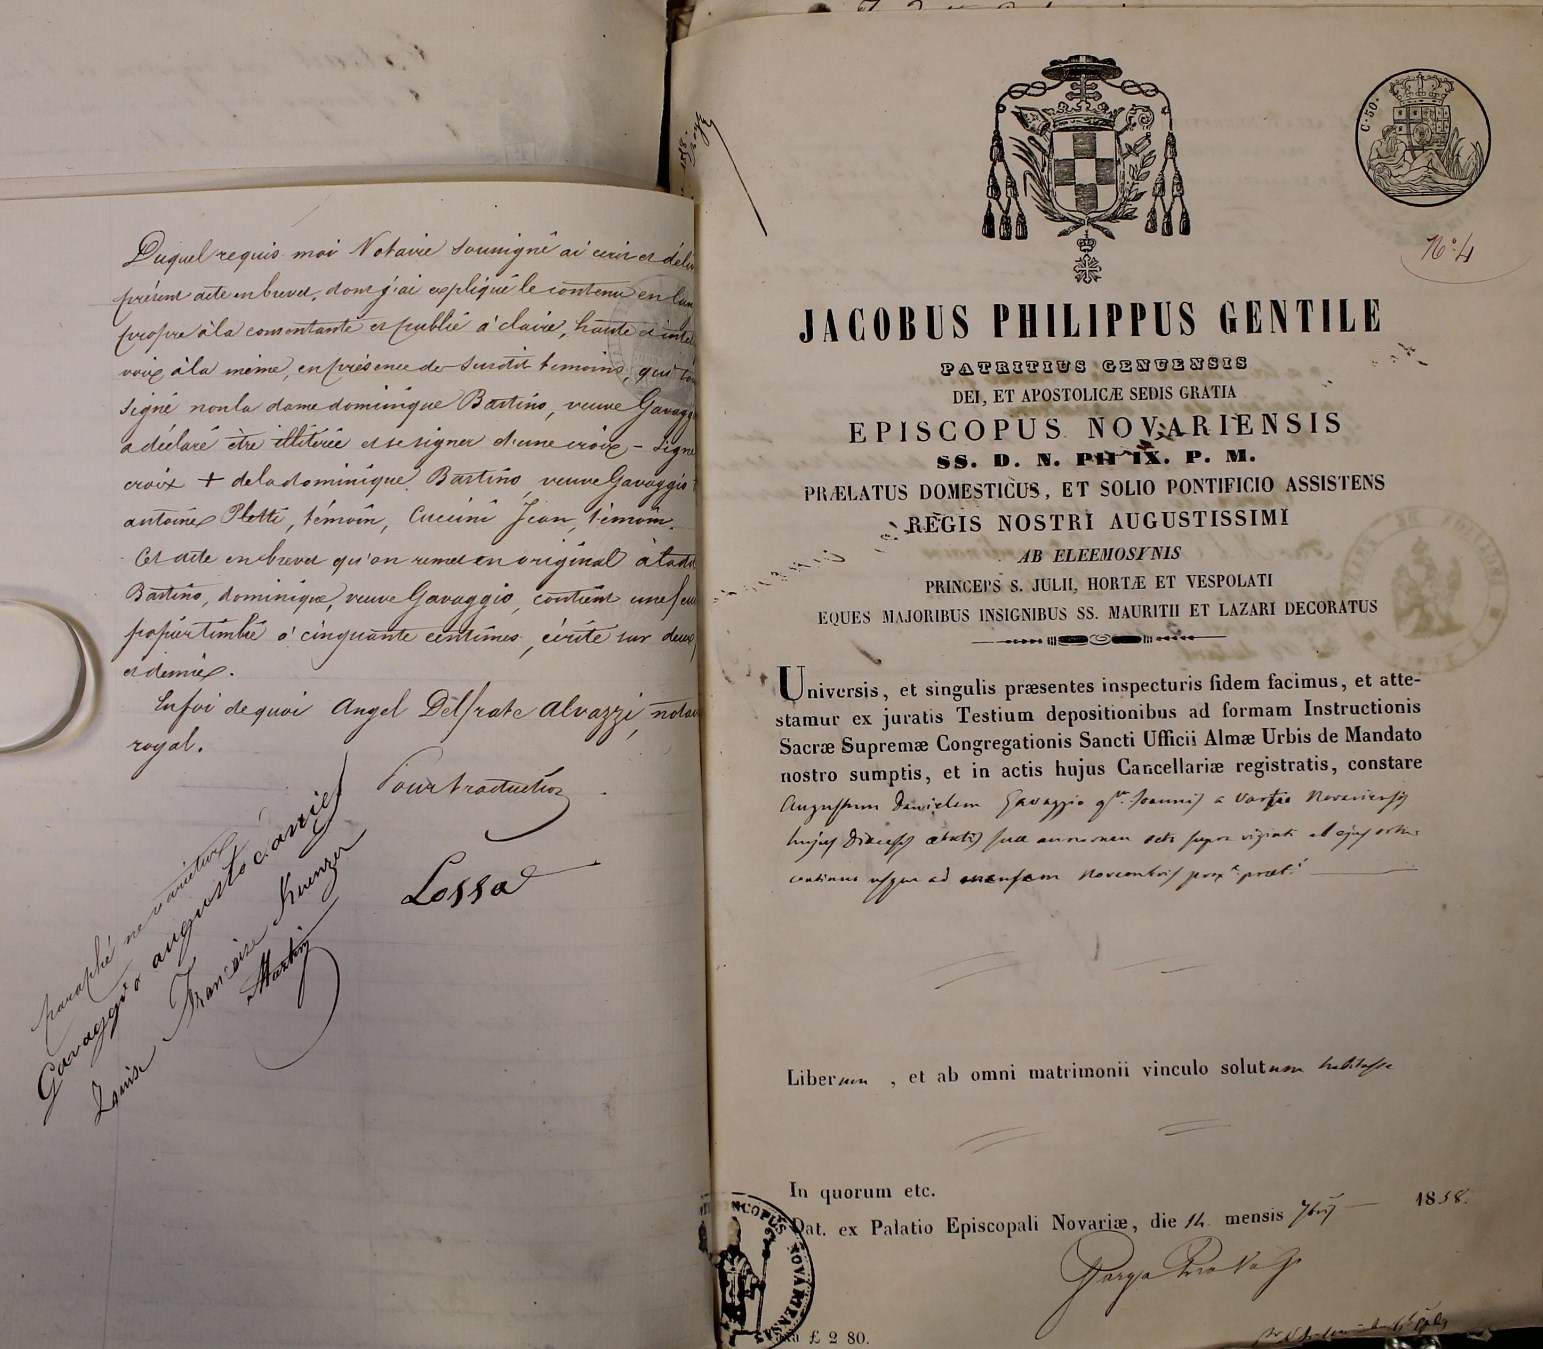 Duquel requis moi Notaire soussigné ai écrit et déli
présent acte en brevet, dont j'ai expliqué le contenu en lan
propre à la consentante et publié à claire, haute et inte
voix à la même, en présence de susdit témoins, qui
signé non la dame dominique Bastino, veuve Gavagg
a déclaré être illitérée et se signer d'une croix - signe
croix + de la dominique Bastino, veuve Gavaggio
antoine Pletti, témoin, Cuccini Jean, témoin.
Cet acte en brevet qu'on remet en original à la d
Bastino, dominique, veuve Gavaggio, contient une feu
papier timbré à cinquante centimes, écrite sur deux
et demie.
En foi de quoi Angel Delfrate Alvazzi, nota
royal.
Pour traduction
Lossa
paraphé ne varietur
Gavaggio augusto
Louise Françoise Kuenzer
Martin
C. 50.
N.° 4
JACOBUS PHILIPPUS GENTILE
PATRITIUS GENUENSIS
DEI, ET APOSTOLICÆ SEDIS GRATIA
EPISCOPUS NOVARIENSIS
SS. D. N. PII IX. P. M.
PRÆLATUS DOMESTICUS, ET SOLIO PONTIFICIO ASSISTENS
REGIS NOSTRI AUGUSTISSIMI
AB ELEEMOSYNIS
PRINCEPS S. JULII, HORTÆ ET VESPOLATI
EQUES MAJORIBUS INSIGNIBUS SS. MAURITII ET LAZARI DECORATUS
Universis, et singulis præsentes inspecturis fidem facimus, et atte-
stamur ex juratis Testium depositionibus ad formam Instructionis
Sacræ Supremæ Congregationis Sancti Ufficii Almæ Urbis de Mandato
nostro sumptis, et in actis hujus Cancellariæ registratis, constare
Augustum Danielem Gavaggio q.m Joannis a Varzo Novariensis
hujus Diœcesis ætatis suæ annorum octo supra viginti et ejus ortu
continuo usque ad mensem Novembris prox.e præt.i
Liberum, et ab omni matrimonii vinculo solutum habitasse
In quorum etc.
Dat. ex Palatio Episcopali Novariæ, die 14 mensis 7bris 1858.
EPISCOPUS NOVARIENSIS
£ 2 80.